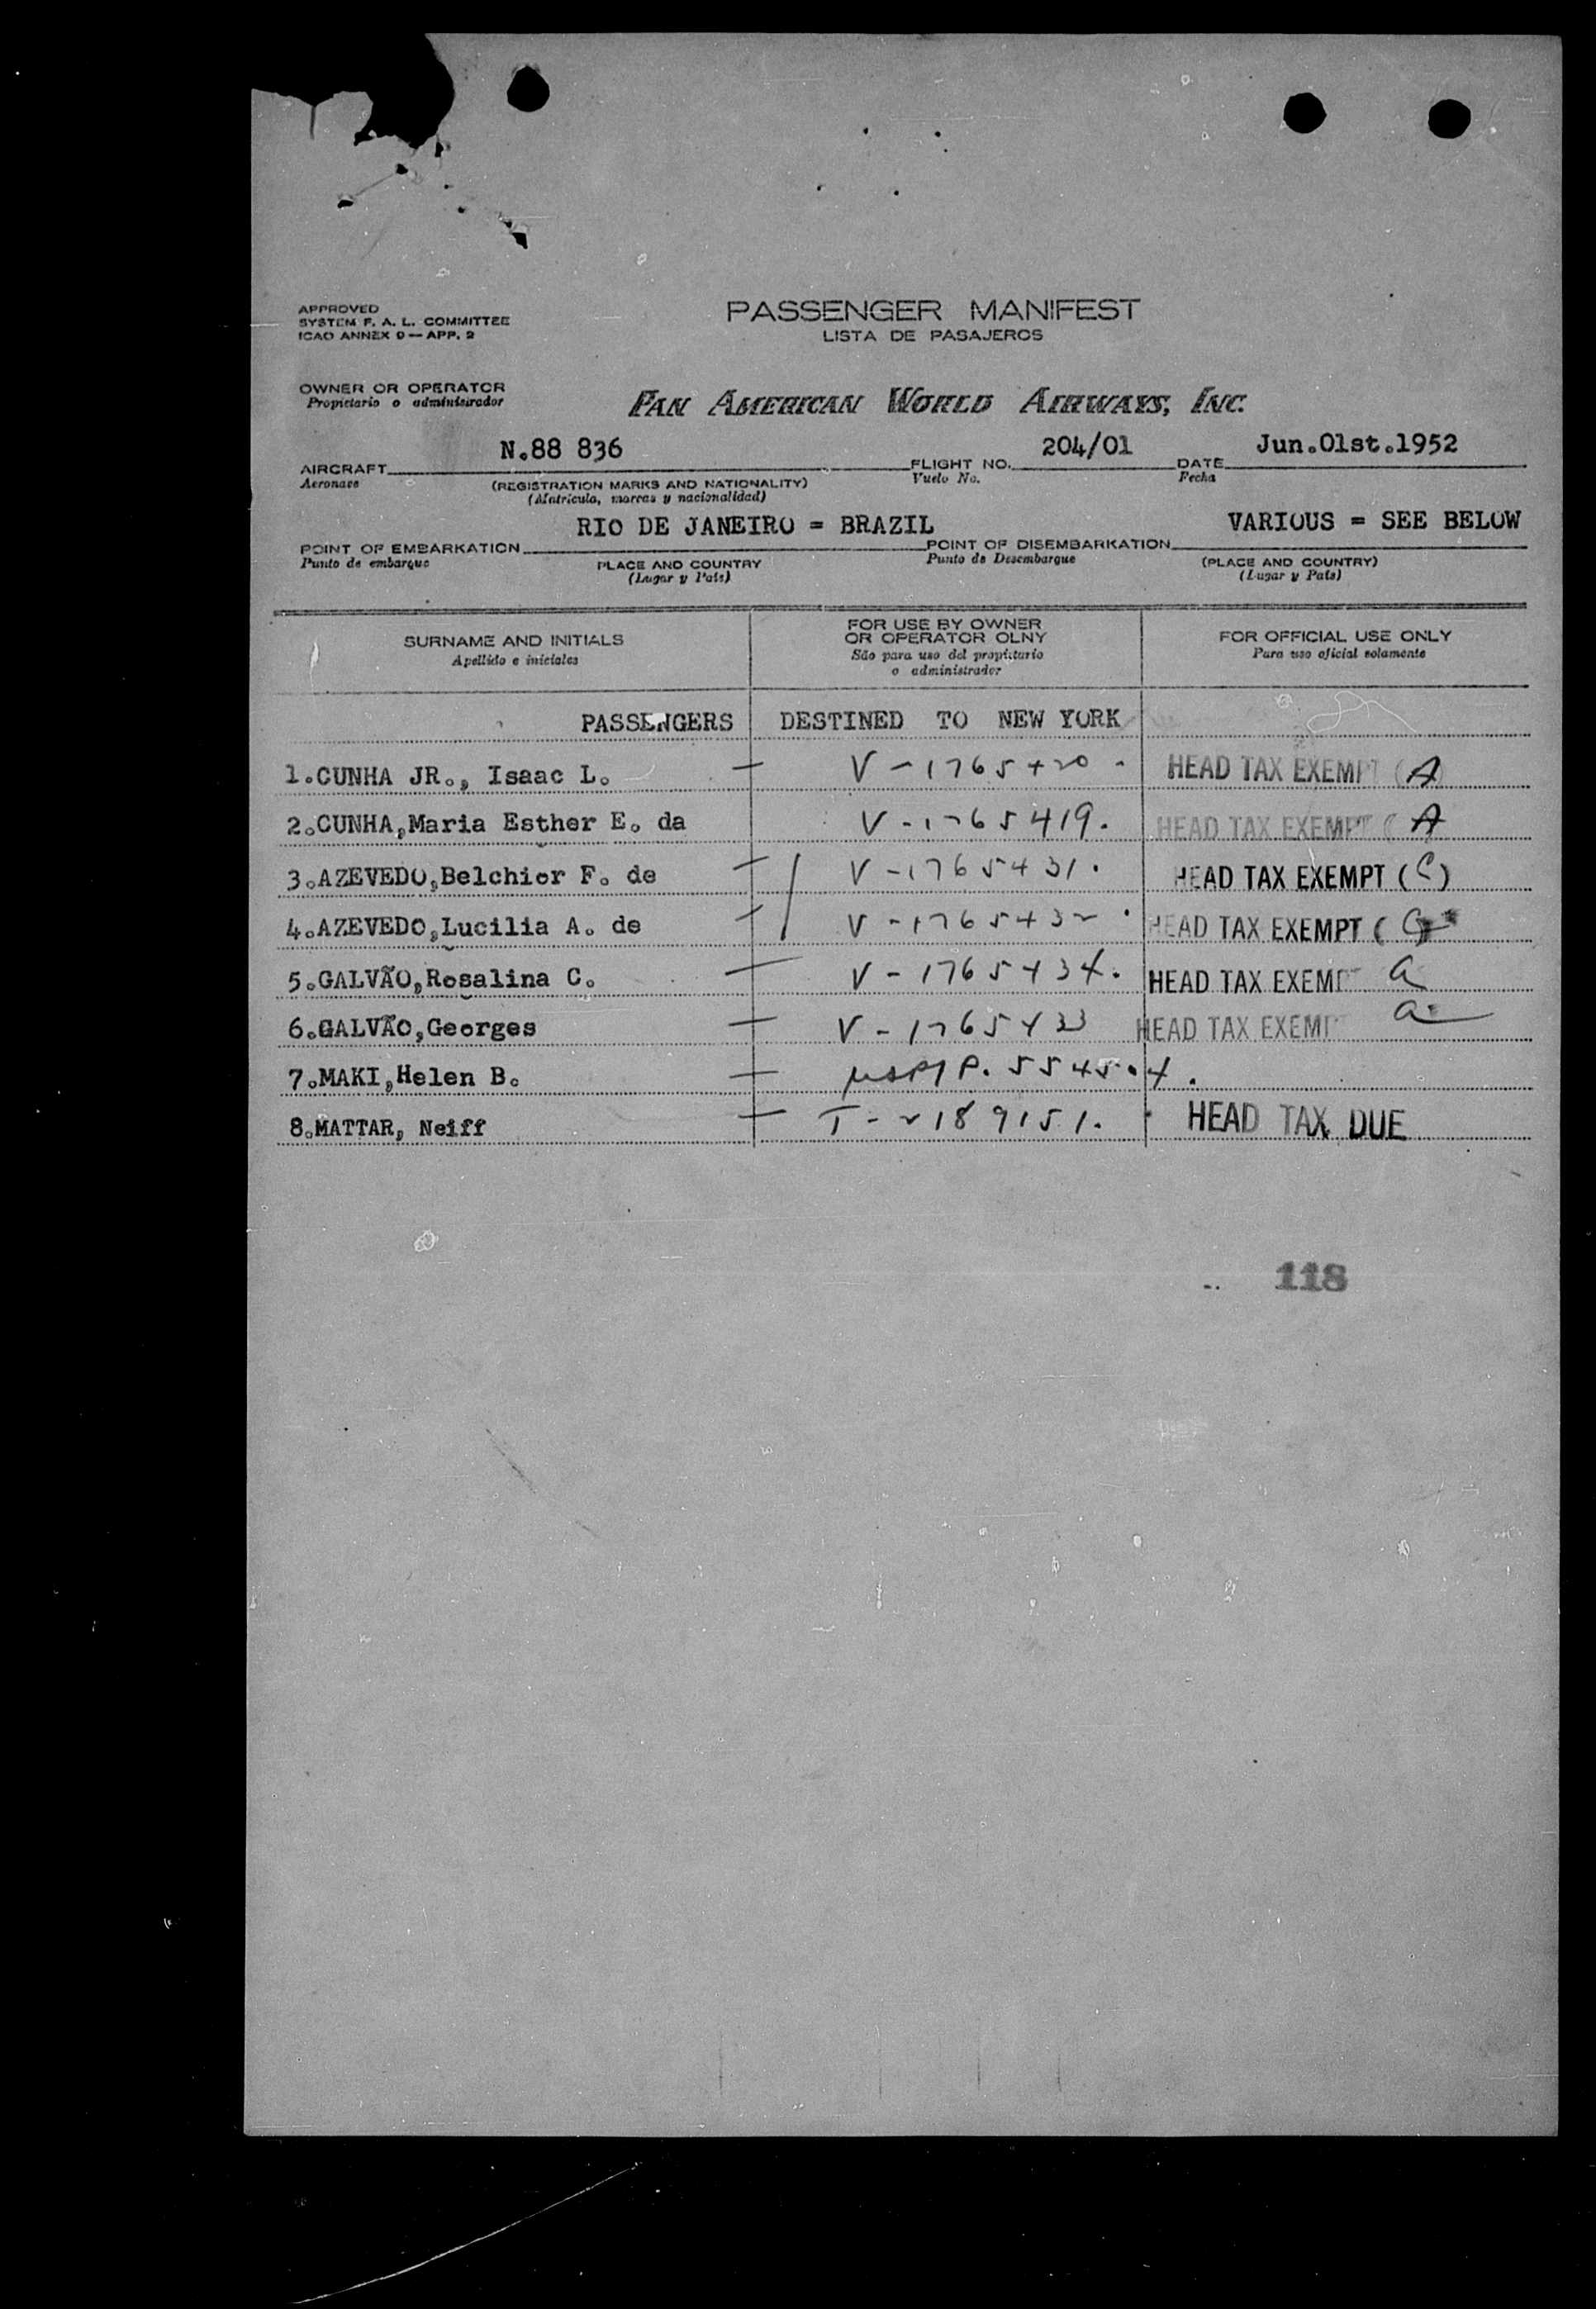 APPROVED
SYSTEM F. A. L. COMMITTEE
ICAO ANNEX 9 — APP. 2
PASSENGER MANIFEST
LISTA DE PASAJEROS
OWNER OR OPERATOR
Propietario o administrador
PAN AMERICAN WORLD AIRWAYS, INC.
AIRCRAFT N.88 836 FLIGHT NO. 204/01 DATE Jun.01st.1952
Aeronave (REGISTRATION MARKS AND NATIONALITY) Vuelo No. Fecha
(Matrícula, marcas y nacionalidad)
POINT OF EMBARKATION RIO DE JANEIRO = BRAZIL POINT OF DISEMBARKATION VARIOUS = SEE BELOW
Punto de embarque PLACE AND COUNTRY Punto de Desembarque (PLACE AND COUNTRY)
(Lugar y País) (Lugar y País)
SURNAME AND INITIALS
Apellido e iniciales
FOR USE BY OWNER
OR OPERATOR OLNY
São para uso del propietario
o administrador
FOR OFFICIAL USE ONLY
Para uso oficial solamente
PASSENGERS DESTINED TO NEW YORK
1.CUNHA JR., Isaac L. — V-1765420. HEAD TAX EXEMPT (A)
2.CUNHA,Maria Esther E. da V-1765419. HEAD TAX EXEMPT ( A
3.AZEVEDO,Belchior F. de — V-1765431. HEAD TAX EXEMPT (C)
4.AZEVEDO,Lucilia A. de — V-1765432. HEAD TAX EXEMPT (
5.GALVÃO,Rosalina C. — V-1765434. HEAD TAX EXEMPT a
6.GALVÃO,Georges — V-1765433 HEAD TAX EXEMPT a
7.MAKI,Helen B. — P. 5545.4.
8.MATTAR, Neiff — T-2189151. HEAD TAX DUE
118